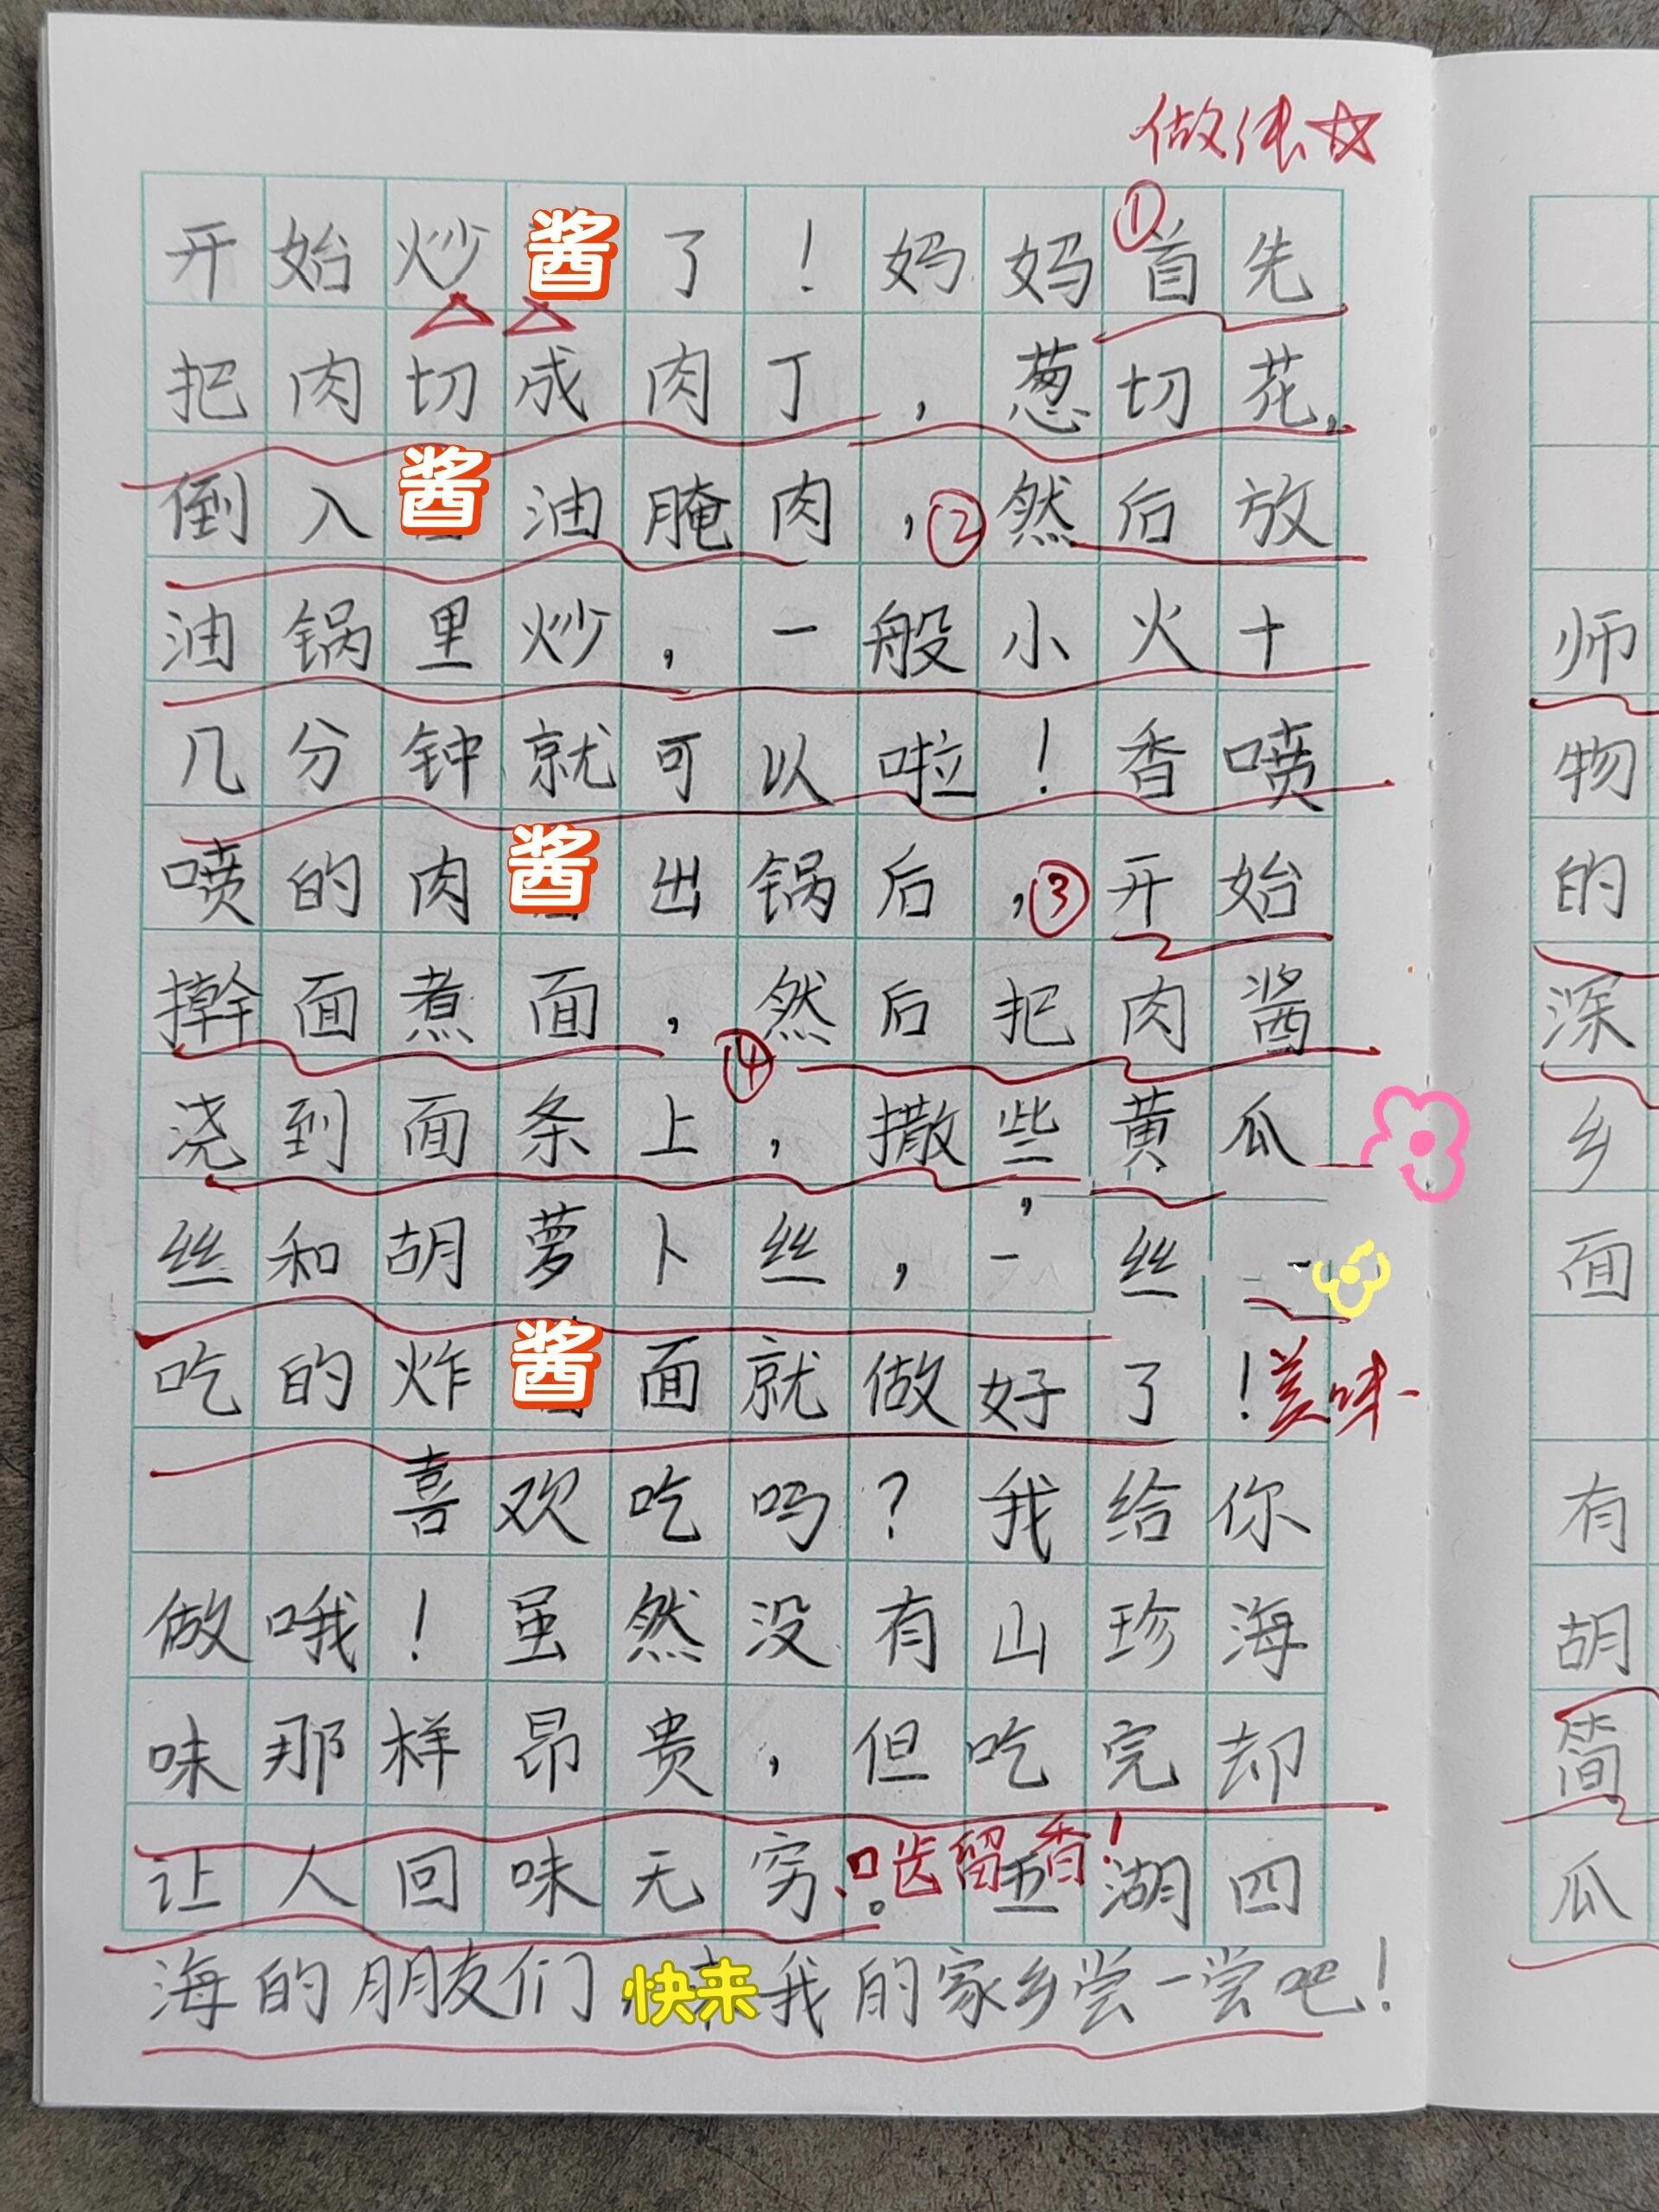 做法☆
开始炒酱了！妈妈①首先
把肉切成肉丁，葱切花。
倒入酱油腌肉，②然后放
油锅里炒，一般小火十
几分钟就可以啦！香喷
喷的肉酱出锅后，③开始
擀面煮面，④然后把肉酱
浇到面条上，撒些黄瓜
丝和胡萝卜丝，一丝
吃的炸酱面就做好了！美味
喜欢吃吗？我给你
做哦！虽然没有山珍海
味那样昂贵，但吃完却
让人回味无穷。口齿留香！五湖四
海的朋友们，快来我的家乡尝一尝吧！
师
物
的
深
乡
面
有
胡
简
瓜